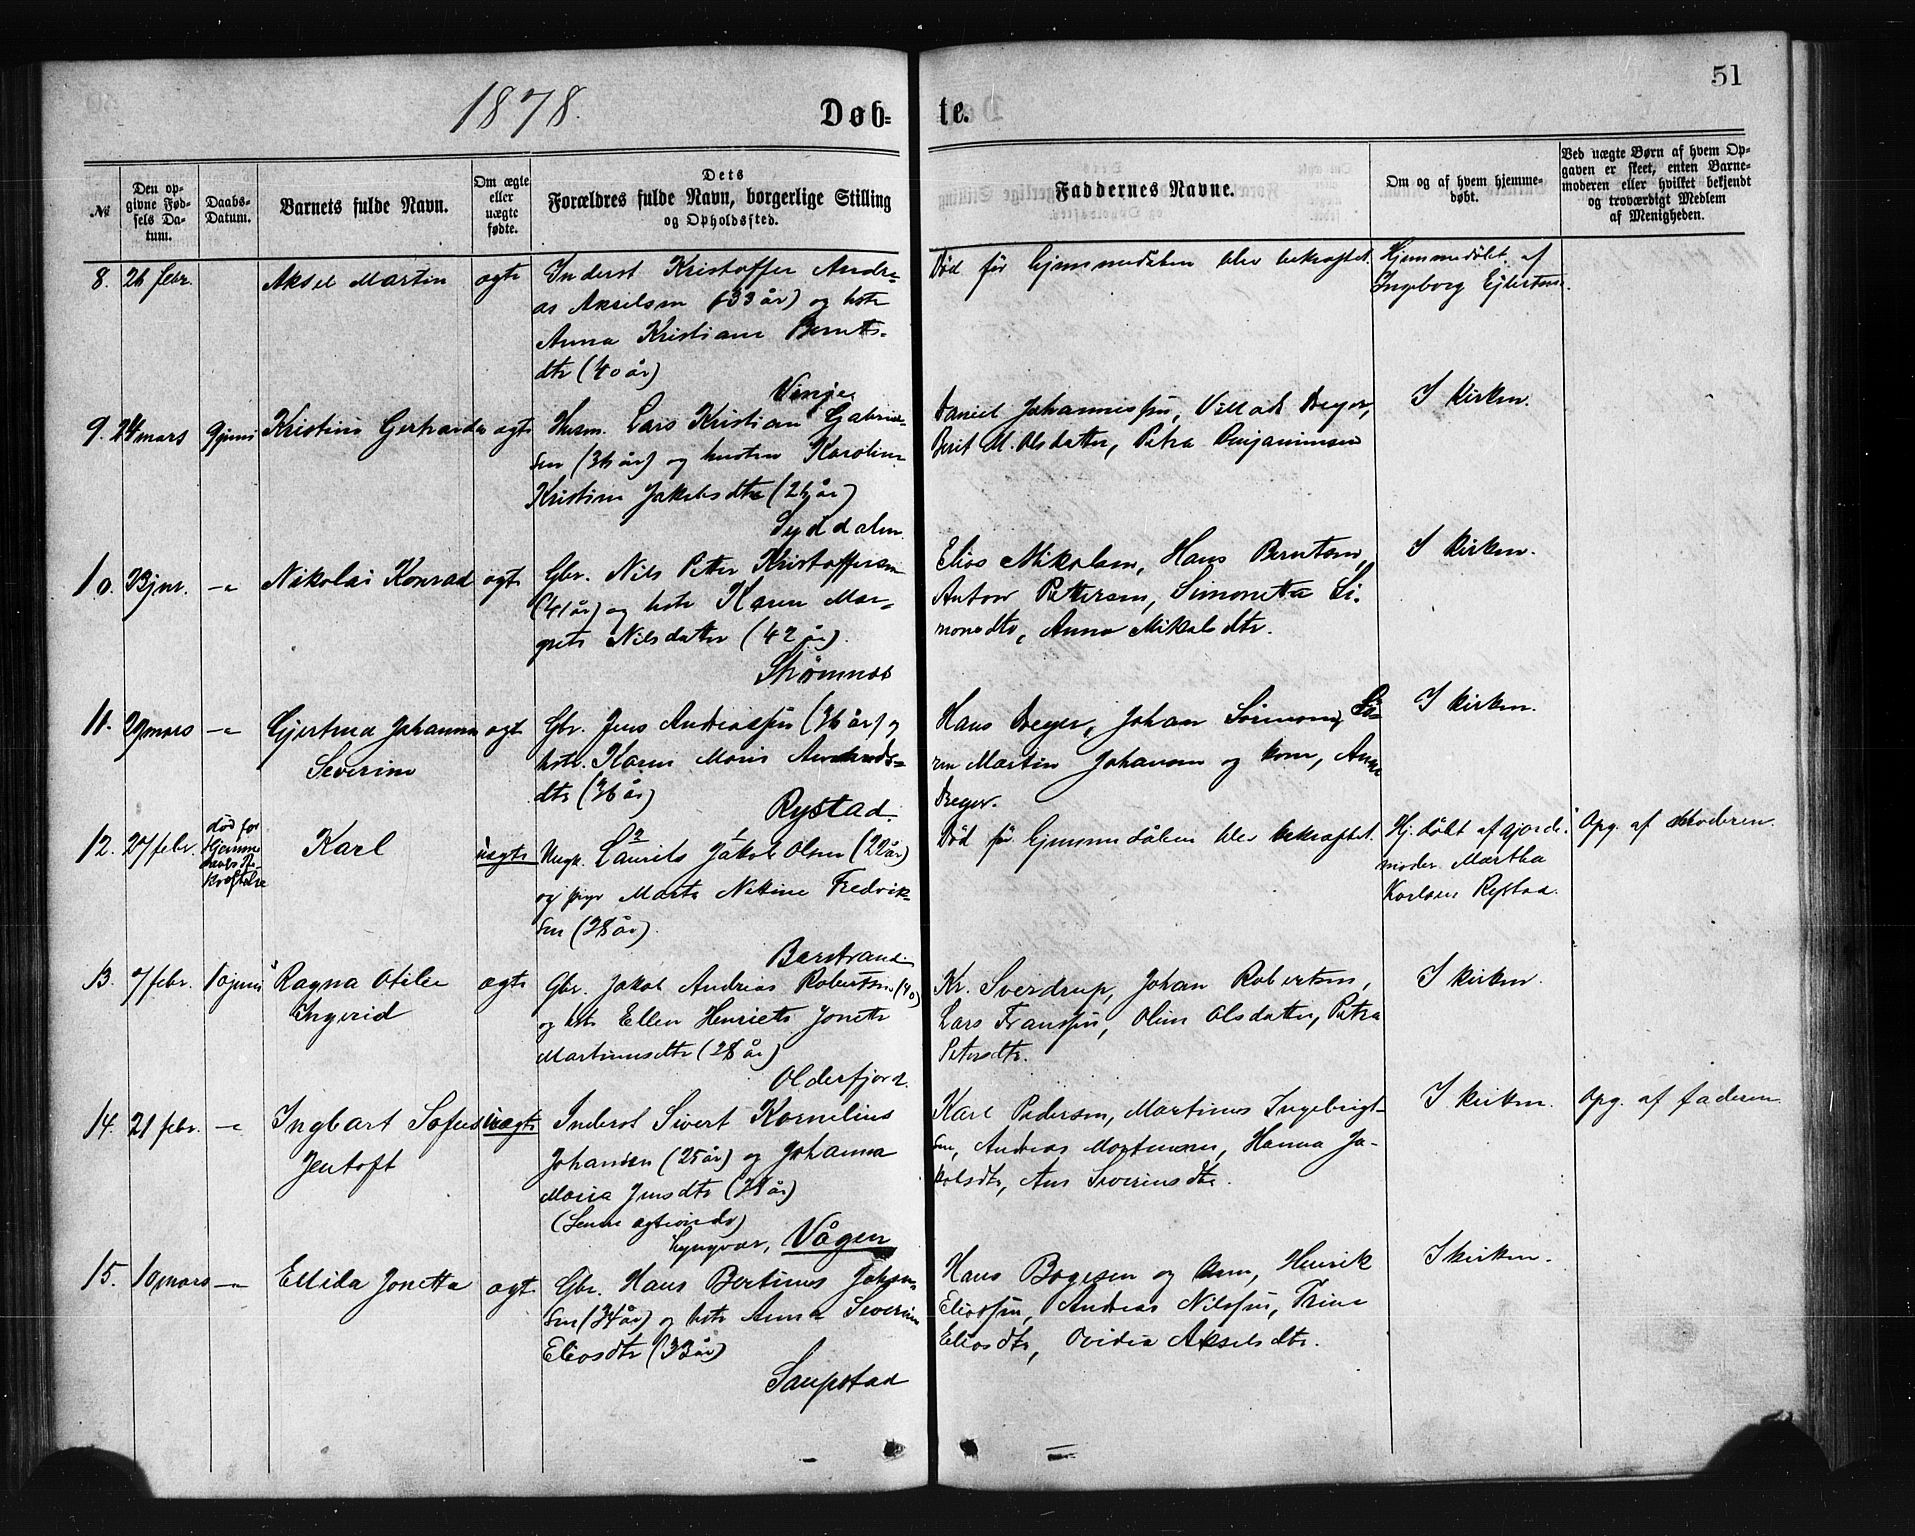 1878.
Døb-
te.
51
№
Den op-
givne Fød-
sels Da-
tum.
Daabs-
Datum.
Barnets fulde Navn.
Om ægte
eller
uægte
fødte.
Dets
Forældres fulde Navn, borgerlige Stilling
og Opholdssted.
Faddernes Navne.
Om og af hvem hjemme-
døbt.
Ved uægte Børn af hvem Op-
gaven er skeet, enten Barne-
moderen eller hvilket bekjendt
og troværdigt Medlem
af Menigheden.
8. 26 febr.
Aksel Martin
ægte
Inderst Kristoffer Andre-
as Akselsen (33 år) og hstr
Anna Kristiane Bernts-
dtr (40 år)
Vinje
Død før Hjemmedåben blev bekræftet.
Hjemmedøbt af
Ingeborg Ejlertsen.
9. 24 mars 9 juni
Kristine Gertarda
ægte
Husm. Lars Kristian Gabriel-
sen (36 år) og hustru Karoline
Kristine Jakobsdtr (26 år)
Syddalen
Daniel Johannessen, Villads Breger,
Berit M. Olsdatter, Petra Benjaminsen
I Kirken.
10. 23 jnr. -"-
Nikolai Konrad
ægte
Gbr. Nils Peter Kristoffersen
(41 år) og hstr Karen Mar-
grete Nilsdatter (42 år).
Strømnes
Elias Mikalsen, Hans Berntsen,
Anton Pettersen, Simonette Si-
monsdtr, Anna Mikalsdtr.
I kirken.
11. 29 mars -"-
Gjertina Johanna
Severine
ægte
Gbr. Jens Andreassen (36 år) og
hstr. Karen Marie Amundsdtr
dtr (36 år)
Rystad.
Hans Breger, Johan Sørmoni, Sø-
ren Martin Johansen og kone, Anne
Breger.
I kirken.
12. 27 febr.
død før
Hjemme-
daabs be-
kræftelse
Karl
uægte
Ungk. Laurits Jakob Olsen (22 år)
og pige Marta Nekine Fredrik-
sen (28 år).
Borstrand
Død før Hjemmedåben blev bekræftet.
Hj. døbt af gjorde-
moder Martha
Karlsen Rystad.
Opg. af Moderen.
13. 7 febr. 10 juni
Ragna Otilie
Ingerid
ægte
Gbr. Jakob Andreas Robertsen (40)
og hstr Ellen Henriette Jonette
Martinusdtr (28 år)
Olderfjord.
Kr. Sverdrup, Johan Robertsen,
Lars Franssen, Oline Olsdatter, Petra
Petersdtr.
I kirken.
14. 21 febr. -"-
Ingbart Sofus
Jentoft
uægte
Inderst Sivert Kornelius
Johansen (25 år) og Johanna
Maria Jensdtr (21 år)
(Senere ægteviede)
Lyngvær, Vågen
Karl Pedersen, Martinus Ingebrigt-
sen, Andreas Mortensen, Hanna Ja-
kobsdtr, Ane Severinsdtr.
I kirken.
Opg. af faderen.
15. 10 mars -"-
Ellida Jonetta
ægte
Gbr. Hans Bertinus Johan-
sen (34 år) og hstr Anna Severine
Eliasdtr (33 år)
Saupstad
Hans Bogesen og kone, Henrik
Eliassen, Andreas Nilssen, Trine
Eliasdtr, Ovidia Akselsdtr.
I kirken.